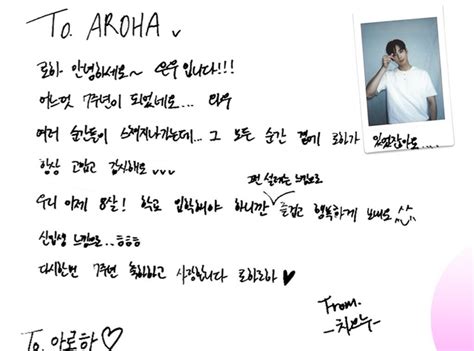 To. AROHA
로하 안녕하세요~ 은우입니다!!!
어느덧 7주년이 되었네요... 와우
여러 순간들이 스쳐지나가는데... 그 모든 순간 곁에 로하가 있었잖아요....
항상 고맙고 감사해요
우리 이제 8살! 학교 입학해야 하니깐 즐겁고 행복하게 보내요 ^^
신입생 느낌으로..ㅎㅎㅎ
다시한번 7주년 축하하고 사랑합니다 로하로하 ♥
From.
To. 아로하 ♡